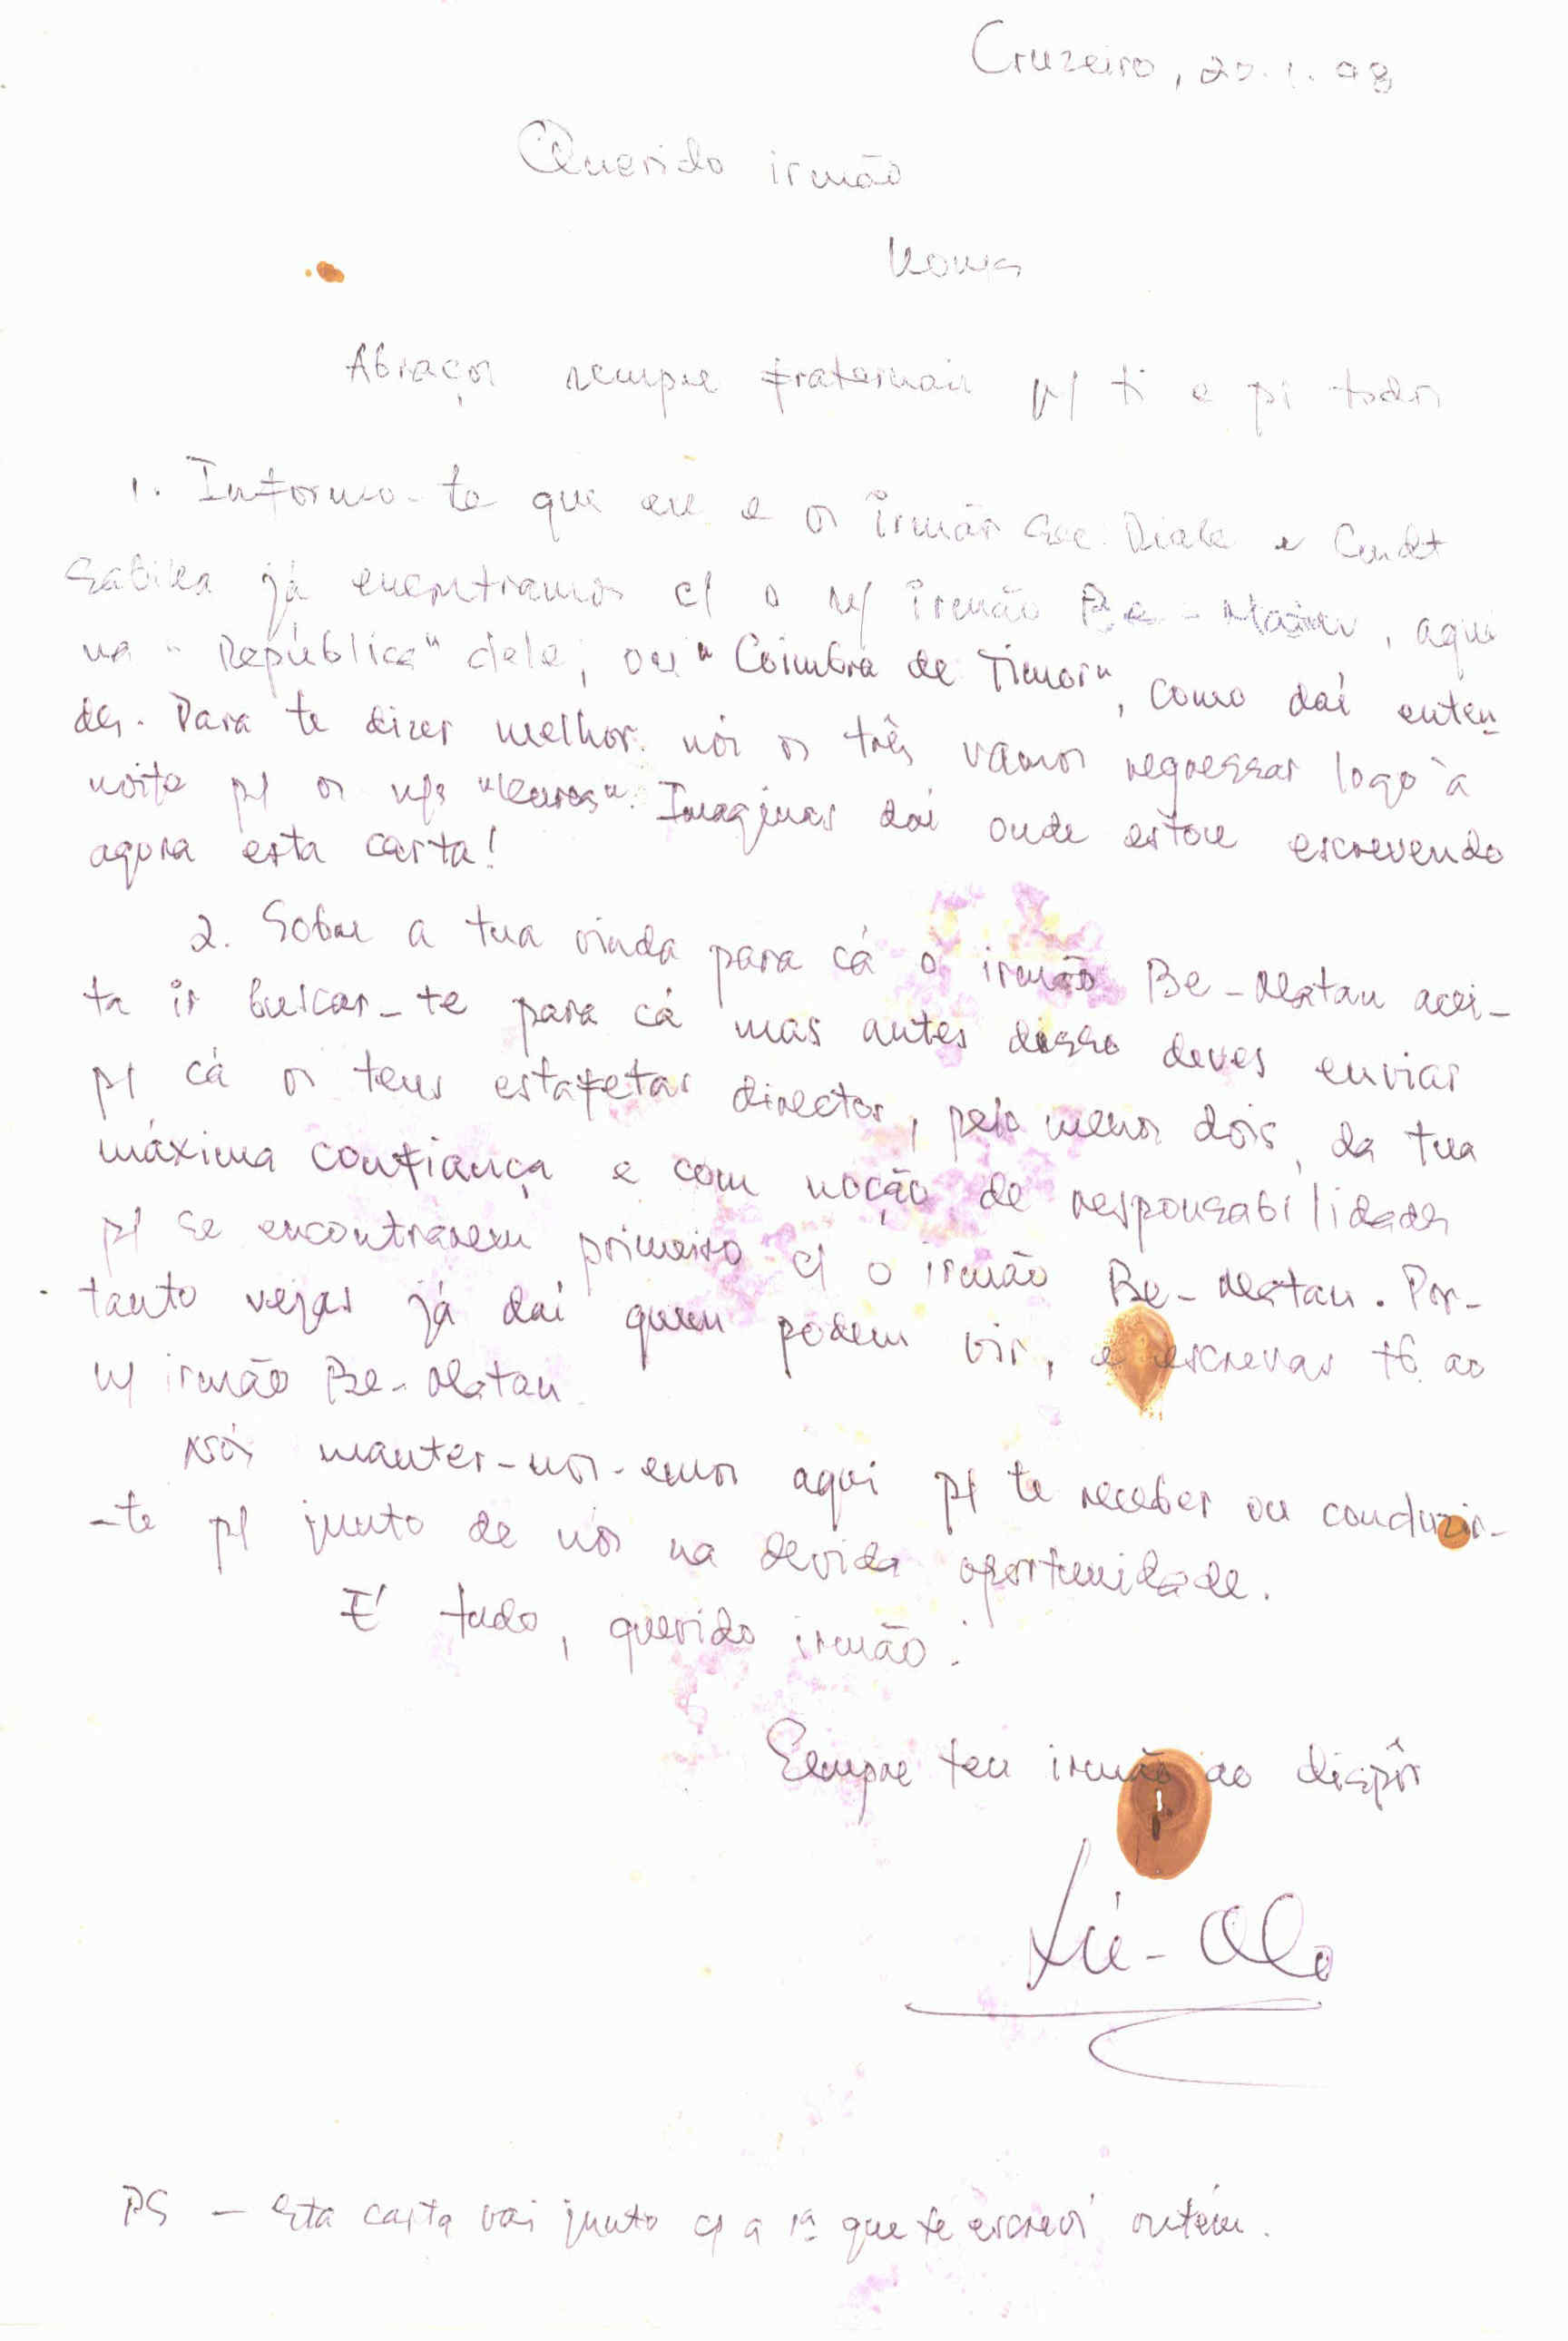 Cruzeiro, 20.1.98
Querido irmão
Konis
Abraços sempre fraternais p/ ti e p/ todos
1. Informo-te que eu e os irmãos Sec. Diak e Cmdt
Sabika já encontramos c/ o n/ irmão Be-Matan, aqui
na "República" dele, ou "Coimbra de Timor", como daí enten
des. Para te dizer melhor nós os três vamos regressar logo à
noite p/ os n/s. Imaginas daí onde estou escrevendo
agora esta carta!
2. Sobre a tua vinda para cá o irmão Be-Matan acei-
ta ir buscar-te para cá mas antes disso deves enviar
p/ cá os teus estafetas directos, pelo menos dois, da tua
máxima confiança e com noção de responsabilidades
p/ se encontrarem primeiro c/ o irmão Be-Matan. Por-
tanto vejas já daí quem podem vir, e escrevas tb. ao
n/ irmão Be-Matan.
Nós manter-nos-emos aqui p/ te receber ou conduzir-
-te p/ junto de nós na devida oportunidade.
É tudo, querido irmão.
Sempre teu irmão ao dispôr
Lú-Olo
PS – Esta carta vai junto c/ a 1ª que te escreví ontém.